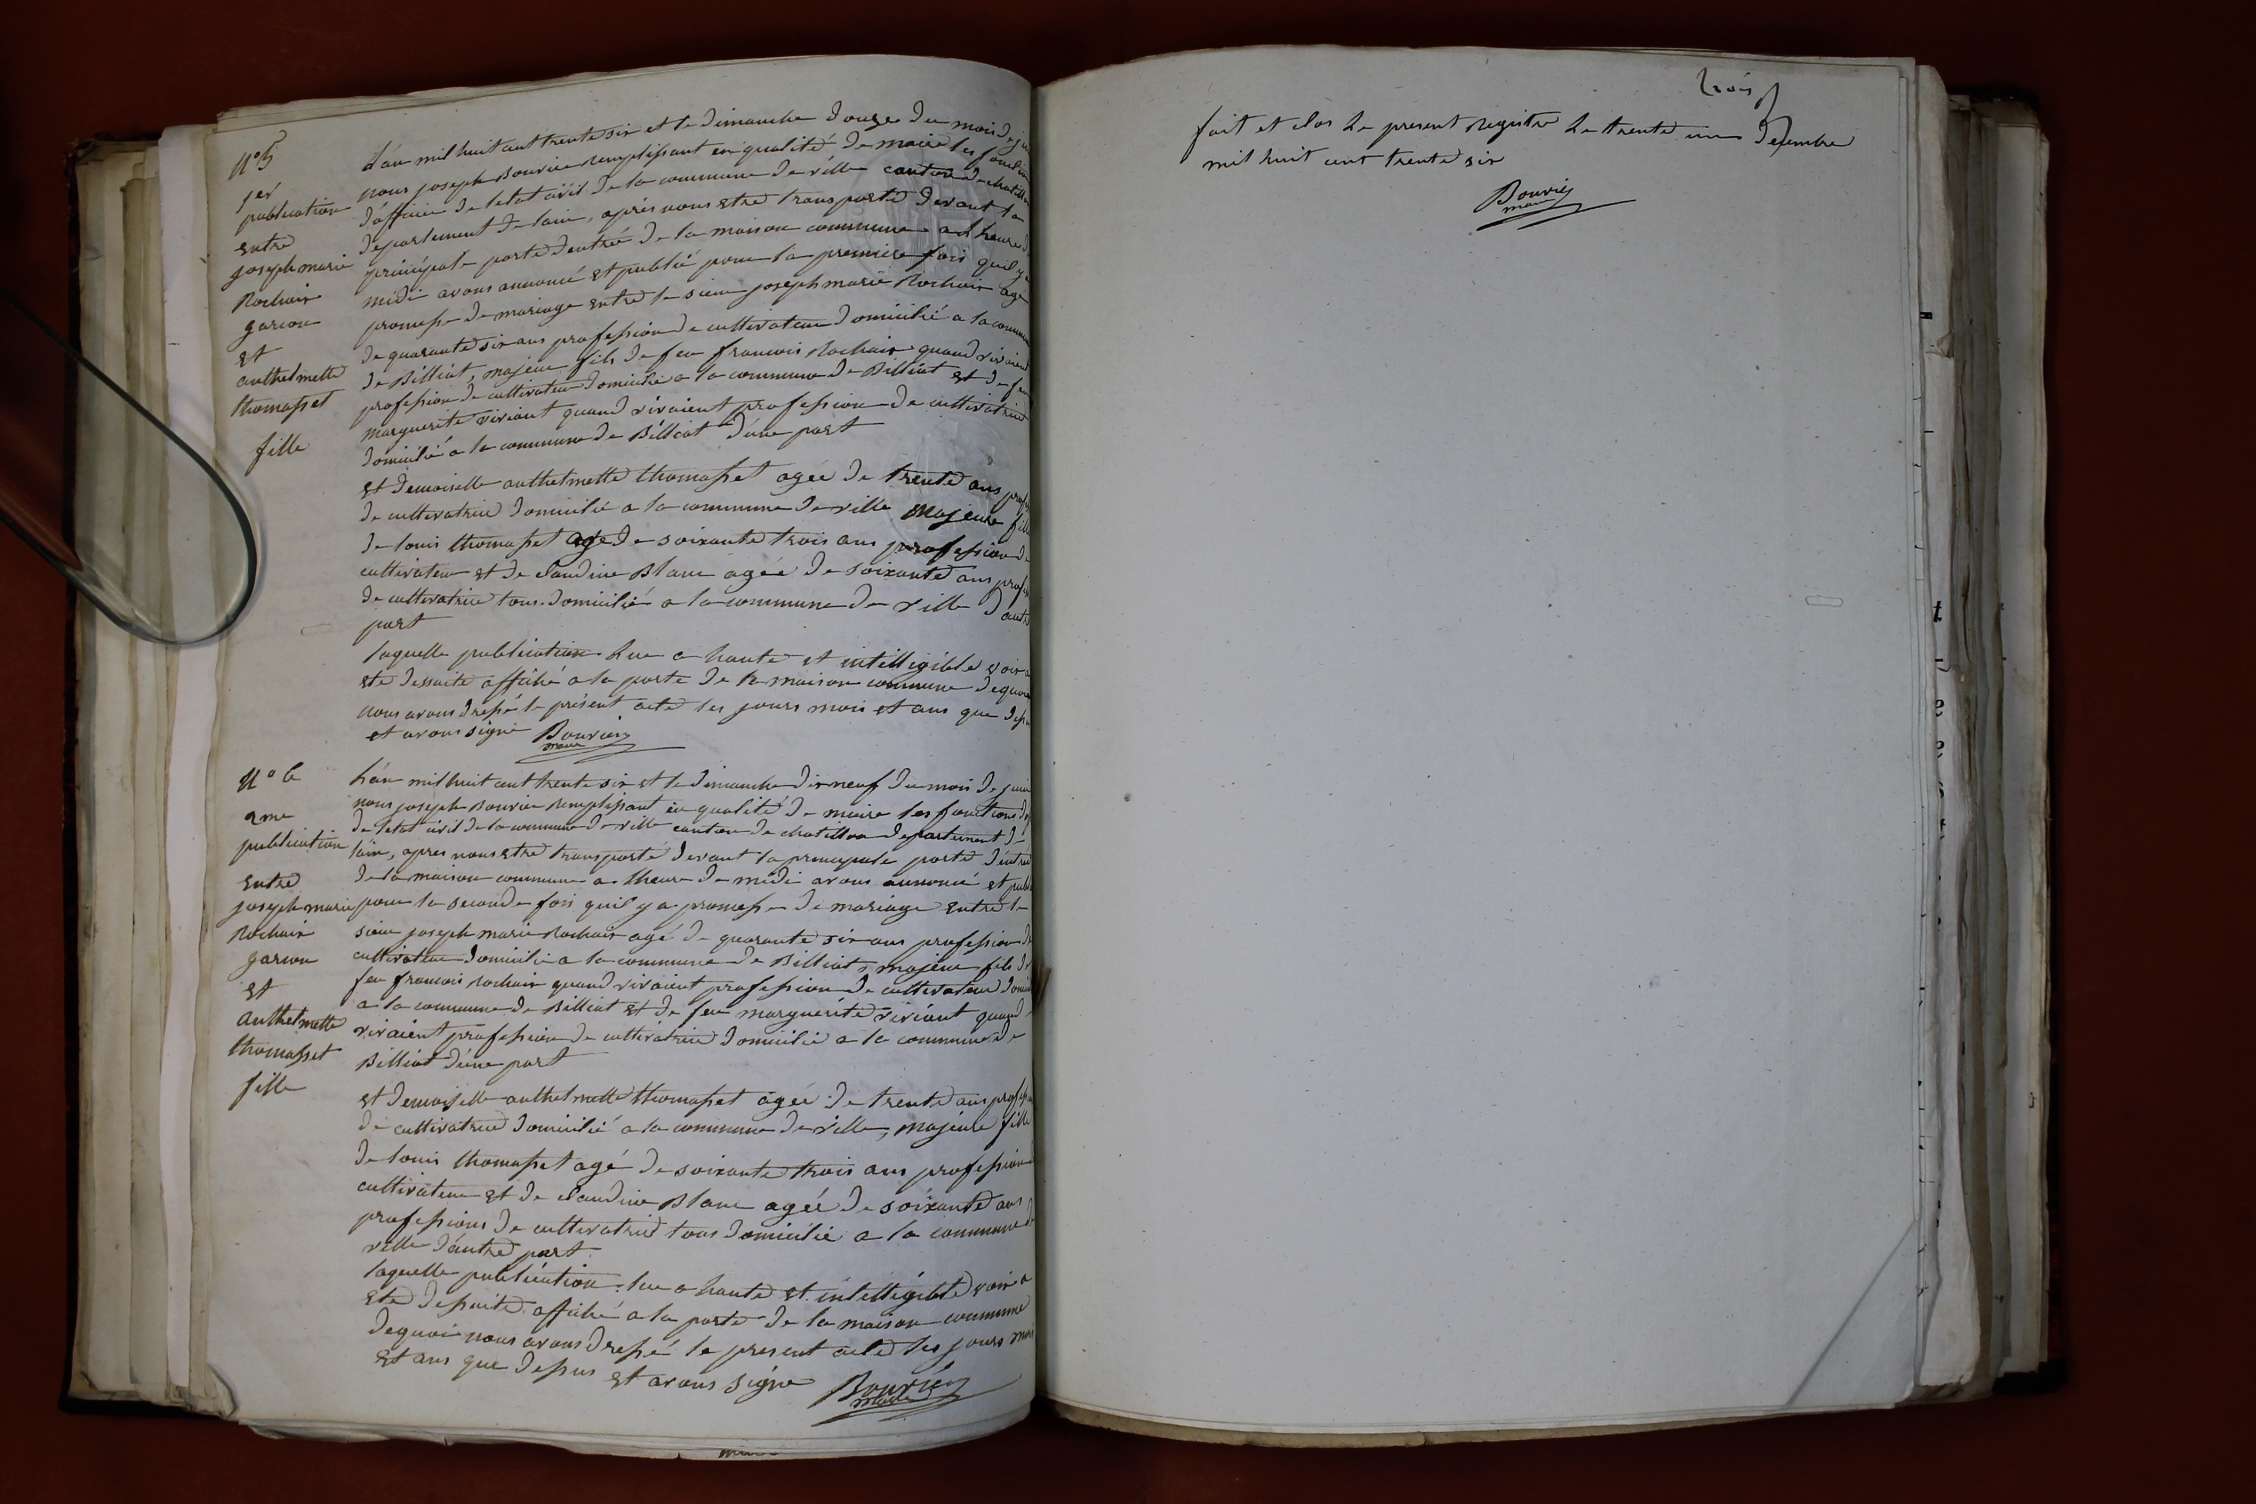 N° 5
1er
publication
entre
joseph marie
Rochaix
garcon
et
anthelmette
thomasset
fille
L'án mil huit cent trente six et le dimanche douze du mois de juin
nous joseph Bouvier remplissant en qualité de maire les fonctions
d'officier de letat civil de la commune de ville canton de chatillon
departement de lain, aprés nous etre transporté devant la
principale porte dentrée de la maison commune a lheure de
midi avons annoncé et publié pour la premiere fois quil y a
promesse de mariage entre le sieur joseph marie Rochaix agé
de quarante six ans profession de cultivateur domicilié a la commune
de Billiat, majeur fils de feu francois Rochaix quand vivaient
profession de cultivateur domicilié a la commune de Billiat et de feu
marguerite viviant quand vivaient profession de cultivatrice
domicilié a la commune de Billiat d'une part
et demoiselle anthelmette thomasset agee de trente ans profession
de cultivatrice domicilié a la commune de ville majeure fille
de louis thomasset agé de soixante trois ans profession de
cultivateur et de claudine Blanc agée de soixante ans profession
de cultivatrice tous domicilié a la commune de ville d'autre
part
laquelle publication lue a haute et intelligible voix a
ete dessuite affiché a la porte de la maison commune dequoi
nous avons dressé le présent acte les jours mois et ans que dessus
et avons signé Bouvier
maire
N° 6
2me
publication
entre
joseph marie
Rochaix
garcon
et
anthelmette
thomasset
fille
L'án mil huit cent trente six et le dimanche dix neuf du mois de juin
nous joseph Bouvier remplissant en qualité de maire les fonctions d'o
de letat civil de la commune de ville canton de chatillon departement de
lain, apres nous etre transporté devant la principale porte d'entrée
de la maison commune a lheure de midi avons annoncé et publié
pour la seconde fois quil y a promesse de mariage entre le
sieur joseph marie Rochaix agé de quarante six ans profession de
cultivateur domicilié a la commune de Billiat, majeur fils de
feu francois Rochaix quand vivaient profession de cultivateur domicilié
a la commune de Billiat et de feu marguérite viviant quand
vivaient profession de cultivatrice domicilié a la commune de
Billiat d'une part
et demoiselle anthelmette thomasset agée de trente ans profession
de cultivatrice domicilié a la commune de ville, majeure fille
de louis thomasset agé de soixante trois ans profession
cultivateur et de claudine Blanc agée de soixante ans
professions de cultivatrice tous domicilié a la commune de
ville d'autre part.
laquelle publication lue a haute et intelligible voix a
ete dessuite affiché a la porte de la maison commune
dequoi nous avons dressé le present acte les jours mois
et ans que dessus et avons signé Bouvier
maire
trois
fait et clos le present Registre le trente un decembre
mil huit cent trente six
Bouvier
maire